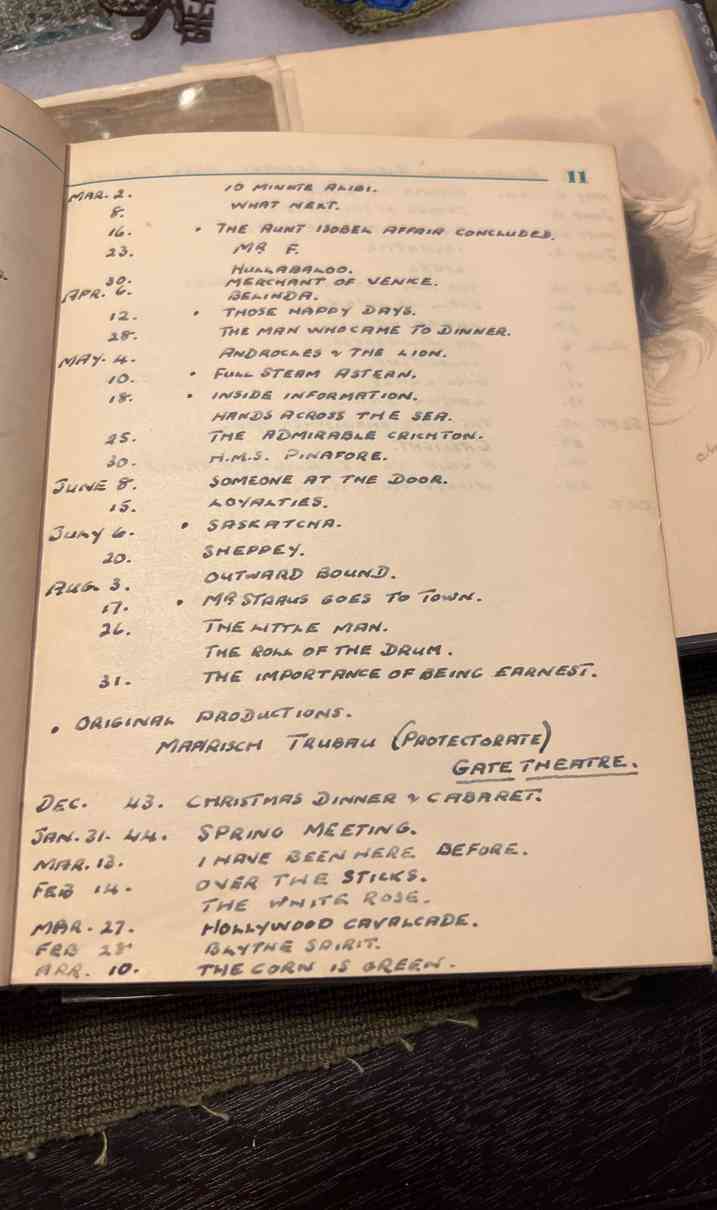 11
MAR. 2. 10 MINUTE ALIBI.
8. WHAT NEXT.
16. • THE AUNT ISOBEL AFFAIR CONCLUDED.
23. MR F.
HULLABALOO.
30. MERCHANT OF VENICE.
APR. 6. BELINDA.
12. • THOSE HAPPY DAYS.
28. THE MAN WHO CAME TO DINNER.
MAY. 4. ANDROCLES & THE LION.
10. • FULL STEAM ASTERN.
18. • INSIDE INFORMATION.
HANDS ACROSS THE SEA.
25. THE ADMIRABLE CRICHTON.
30. H.M.S. PINAFORE.
JUNE 8. SOMEONE AT THE DOOR.
15. LOYALTIES.
JULY 6. • SASKATCHA.
20. SHEPPEY.
AUG. 3. OUTWARD BOUND.
17. • MR STRAUS GOES TO TOWN.
26. THE LITTLE MAN.
THE ROLL OF THE DRUM.
31. THE IMPORTANCE OF BEING EARNEST.
• ORIGINAL PRODUCTIONS.
MAHRISCH TRUBAU (PROTECTORATE)
GATE THEATRE.
DEC. 43. CHRISTMAS DINNER & CABARET.
JAN. 31. 44. SPRING MEETING.
MAR. 13. I HAVE BEEN HERE BEFORE.
FEB 14. OVER THE STICKS.
THE WHITE ROSE.
MAR. 27. HOLLYWOOD CAVALCADE.
FEB 28 BLYTHE SPIRIT.
APR. 10. THE CORN IS GREEN.